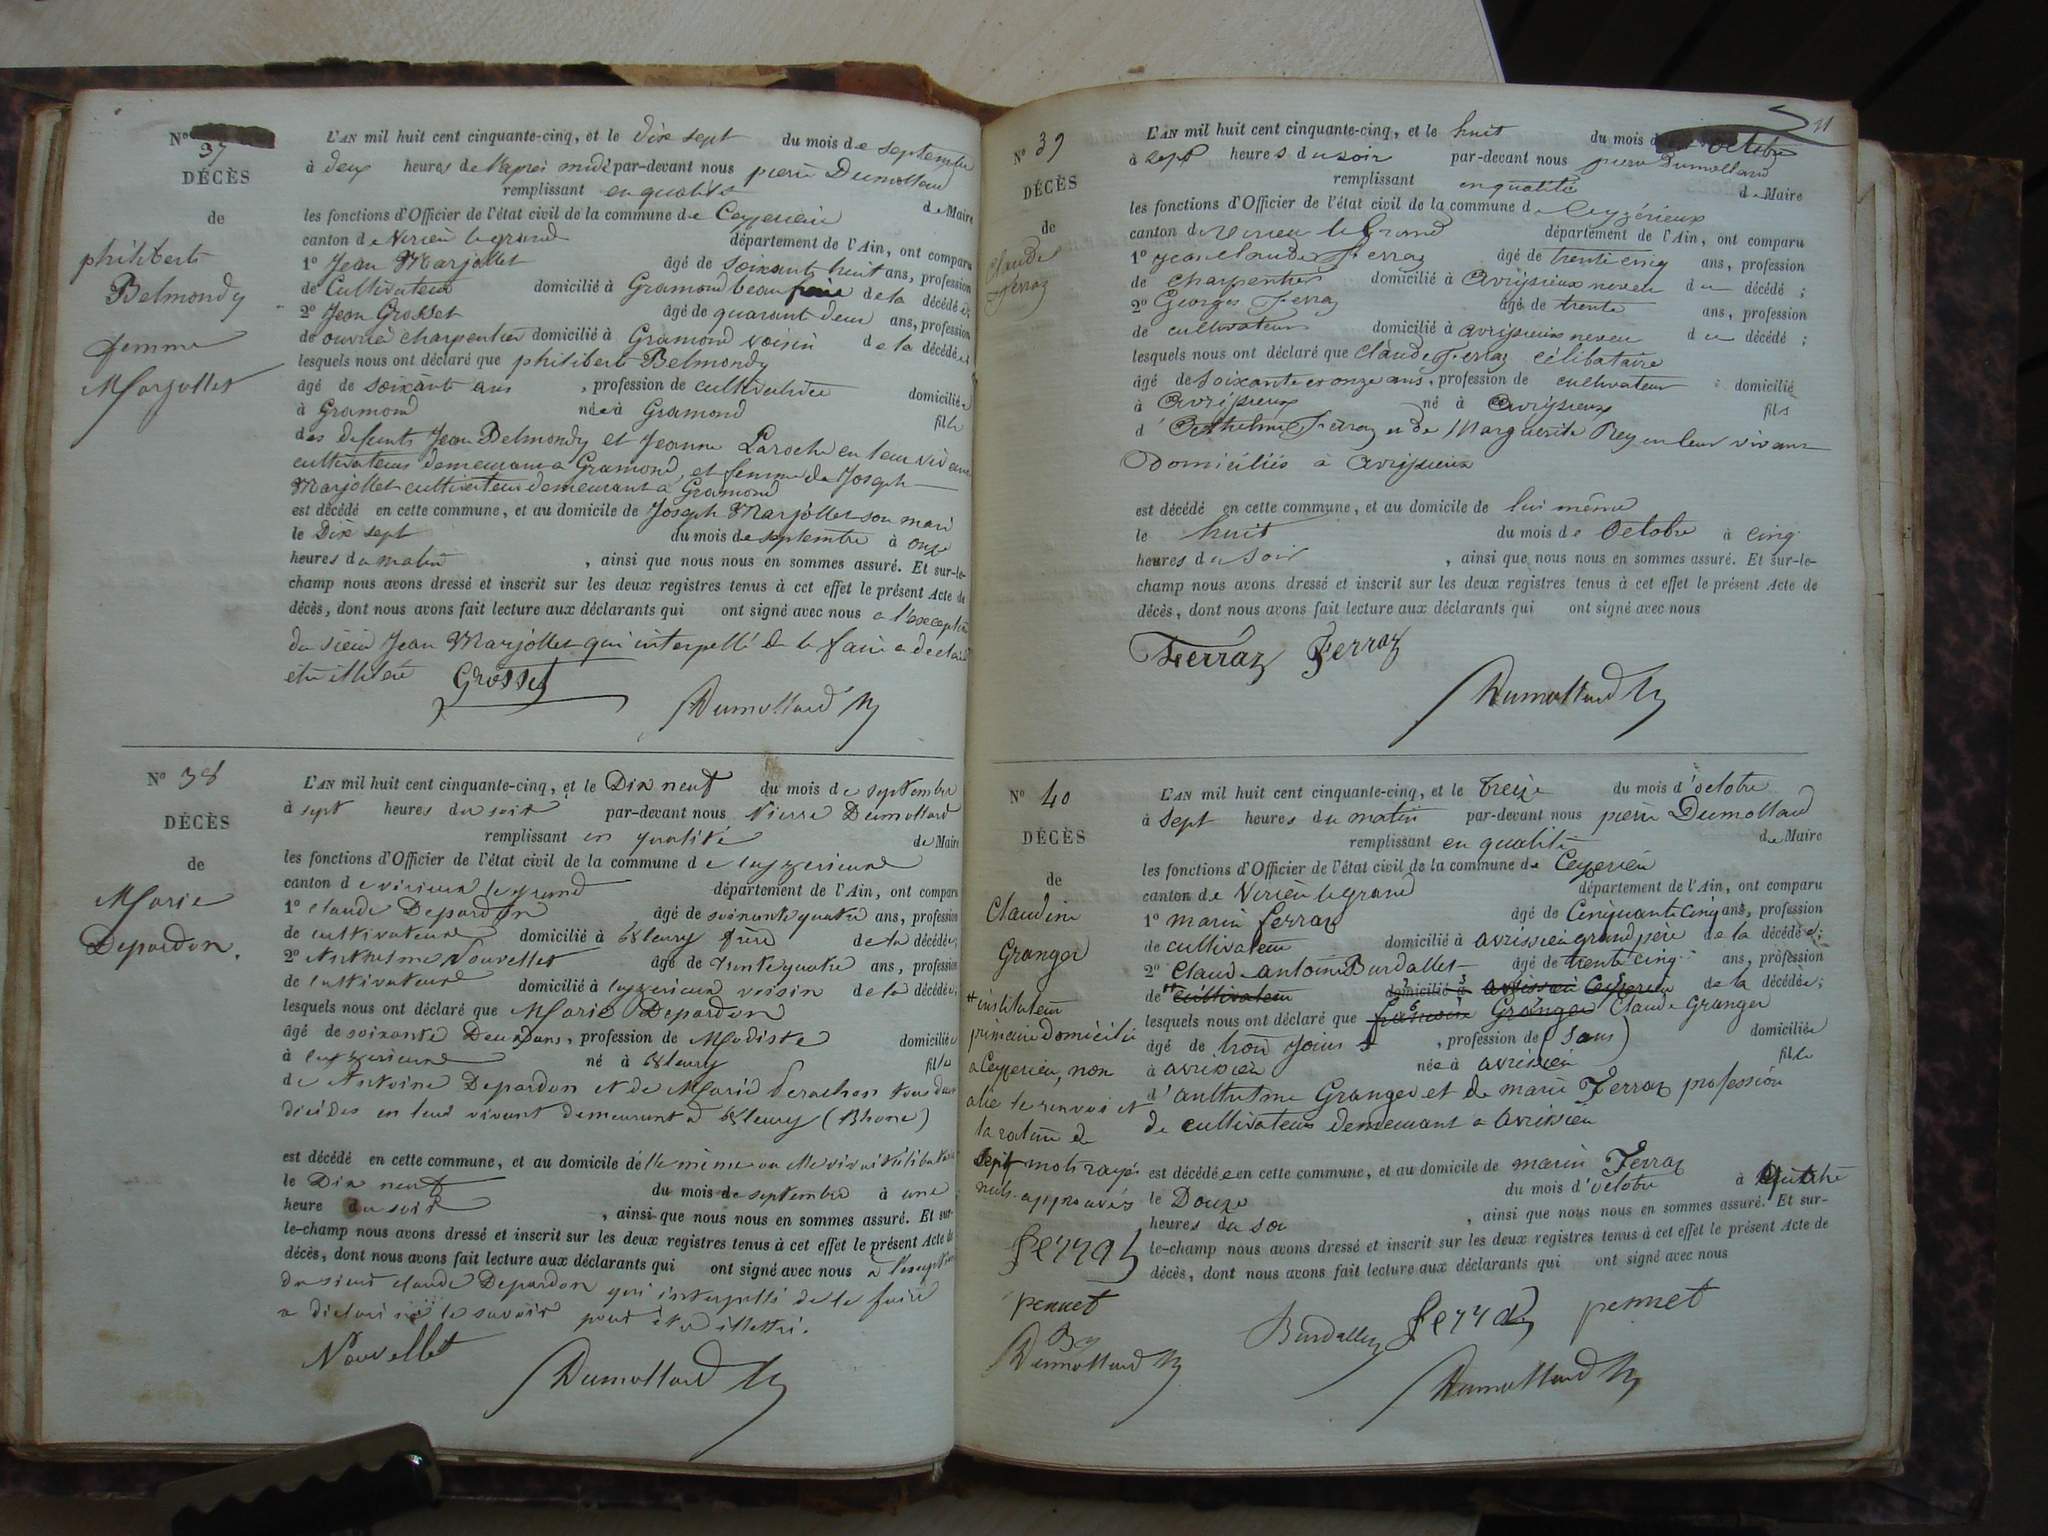 No
37
DÉCÈS
de
philiberte
Belmondy
femme
Marjollet
L'AN mil huit cent cinquante-cinq, et le dix sept du mois de septembre
à deux heures de l'après midi par-devant nous pierre Dumollard
remplissant en qualité de Maire
les fonctions d'Officier de l'état civil de la commune de Ceyzerieu
canton de Virieu le grand département de l'Ain, ont comparu
1o Jean Marjollet âgé de soixante huit ans, profession
de Cultivateur domicilié à Gramond beau frère de la décédée,
2o Jean Grosset âgé de quarant deux ans, profession
de ouvrié charpentier domicilié à Gramond voisin de la décédée
lesquels nous ont déclaré que philiberte Belmondy
âgé de soixante ans, profession de cultivatrice domiciliée
à Gramond née à Gramond fille
des defunts Jean Belmondy et Jeanne Laroche en leur vivant
cultivateurs demeurant a Gramond, et femme de Joseph
Marjollet cultivateur demeurant a Gramond
est décédé en cette commune, et au domicile de Joseph Marjollet son mari
le Dix sept du mois de septembre à onze
heures du matin, ainsi que nous nous en sommes assuré. Et sur-le-
champ nous avons dressé et inscrit sur les deux registres tenus à cet effet le présent Acte de
décès, dont nous avons fait lecture aux déclarants qui ont signé avec nous a l'exception
du sieur Jean Marjollet qui interpellé de le faire a declaré
être illiteré Grosset
Dumollard
No 38
DÉCÈS
de
Marie
Depardon.
L'AN mil huit cent cinquante-cinq, et le Dix neuf du mois de septembre
à sept heures du soir par-devant nous Pierre Dumollard
remplissant en qualité de Maire
les fonctions d'Officier de l'état civil de la commune de
canton de virieux le grand département de l'Ain, ont comparu
1o claude Depardon âgé de soixante quatre ans, profession
de cultivateur domicilié à fleury frère de la décédée,
2o Anthelme Nouvellet âgé de trente quatre ans, profession
de cultivateur domicilié à ceyzerieux voisin de la décédée;
lesquels nous ont déclaré que Marie Depardon
âgé de soixante Deux ans, profession de Modiste domiciliée
à ceyzerieux né à fleury fille
de Antoine Depardon et de Marie tous deux
décédés en leur vivant demeurant à fleury (Rhone)
est décédé en cette commune, et au domicile
le Dix neuf du mois de septembre à une
heure du soir, ainsi que nous nous en sommes assuré. Et sur-
le-champ nous avons dressé et inscrit sur les deux registres tenus à cet effet le présent Acte de
décès, dont nous avons fait lecture aux déclarants qui ont signé avec nous à l'exception
du sieur claude Depardon qui interpellé de le faire
a déclaré ne le savoir pour être illettré.
Nouvellet
Dumollard
21
No 39
DÉCÈS
de
Claude
Ferraz
L'AN mil huit cent cinquante-cinq, et le huit du mois d octobre
à sept heures du soir par-devant nous pierre Dumollard
remplissant en qualité de Maire
les fonctions d'Officier de l'état civil de la commune de Ceyzérieux
canton de virieu le Grand département de l'Ain, ont comparu
1o jean claude Ferraz âgé de trente cinq ans, profession
de charpentier domicilié à avrissieux neveu du décédé;
2o Georges Ferraz âgé de trente ans, profession
de cultivateur domicilié à avrissieux neveu du décédé;
lesquels nous ont déclaré que claude Ferraz célibataire
âgé de soixante et onze ans, profession de cultivateur domicilié
à avrissieux né à avrissieux fils
d' Anthelme Ferraz et de Marguerite Rey en leur vivant
Domiciliés à avrissieux
est décédé en cette commune, et au domicile de lui même
le huit du mois de Octobre à cinq
heures du soir, ainsi que nous nous en sommes assuré. Et sur-le-
champ nous avons dressé et inscrit sur les deux registres tenus à cet effet le présent Acte de
décès, dont nous avons fait lecture aux déclarants qui ont signé avec nous
Ferraz Ferraz
Dumollard
No 40
DÉCÈS
de
Claudine
Granger
instituteur
primaire domicilié
a Ceyzerieu, non
alié le renvoi et
la rature de
sept mots rayés
nuls approuvés
ferraz
pennet
Dumollard
L'AN mil huit cent cinquante-cinq, et le treize du mois d'octobre
à sept heures du matin par-devant nous pierre Dumollard
remplissant en qualité de Maire
les fonctions d'Officier de l'état civil de la commune de Ceyzerieu
canton de Virieu le grand département de l'Ain, ont comparu
1o marin ferraz âgé de Cinquante cinq ans, profession
de cultivateur domicilié à avrissieu grand père de la décédée;
2o Claude antoine Burdallet âgé de trente cinq ans, profession
de cultivateur domicilié à avrissieu Ceyzerieu de la décédée;
lesquels nous ont déclaré que Granger Claude Granger
âgé de trois jours, profession de (sans) domiciliée
à avrissieu née à avrissieu fille
d' anthelme Granger et de marie Ferraz profession
de cultivateurs demeurant a avrissieu
est décédée en cette commune, et au domicile de marin Ferraz
le Douze du mois d'octobre à quatre
heures du soir, ainsi que nous nous en sommes assuré. Et sur-
le-champ nous avons dressé et inscrit sur les deux registres tenus à cet effet le présent Acte de
décès, dont nous avons fait lecture aux déclarants qui ont signé avec nous
Burdallet ferraz pennet
Dumollard